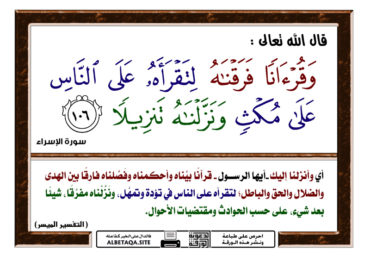 قال الله تعالى :
وَقُرْءَانًا فَرَقْنَٰهُ لِتَقْرَأَهُۥ عَلَى ٱلنَّاسِ
عَلَىٰ مُكْثٍ وَنَزَّلْنَٰهُ تَنزِيلًا ١٠٦
سورة الإسراء
أي وأنزلنا إليك ـ أيها الرسول ـ قرآنًا بيَّناه وأحكمناه وفصلناه فارقًا بين الهدى
والضلال والحق والباطل؛ لتقرأه على الناس في تؤدة وتمهُّل، ونزَّلناه مفرَّقًا، شيئًا
بعد شيء، على حسب الحوادث ومقتضيات الأحوال.
(التفسير الميسر)
احرص على طباعة
ونشر هذه الورقة
فالدال على الخير كفاعله
ALBETAQA.SITE